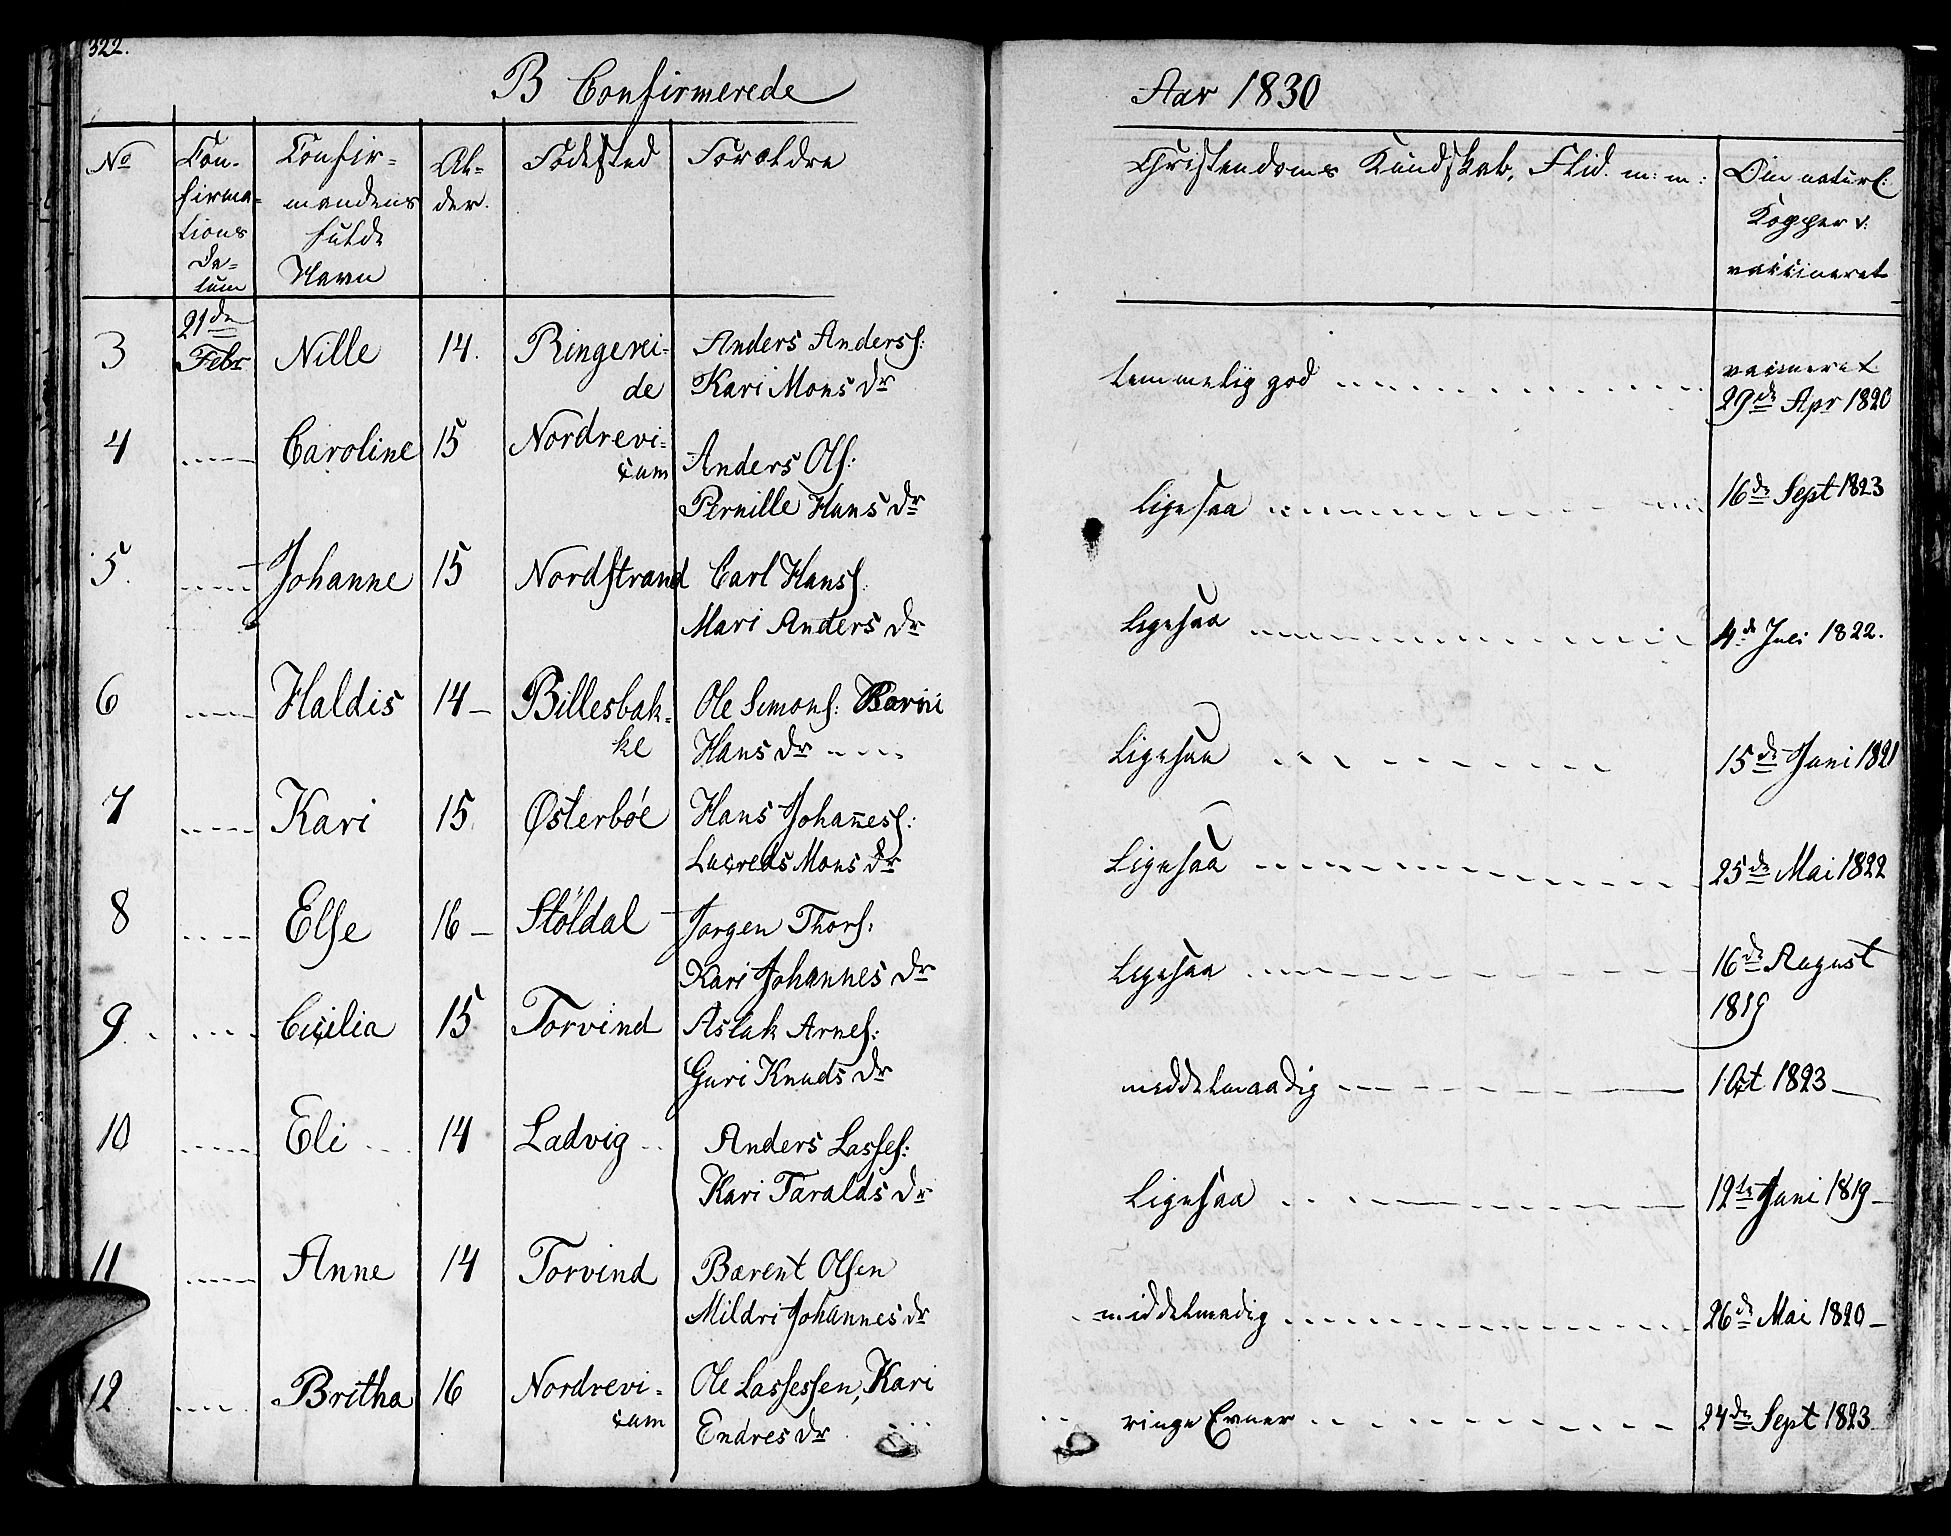 322.
B Confirmerede
Aar 1830
No
Con-
firma-
tions
Da-
tum
Confir-
mandens
fulde
Navn
Al-
der.
Födested
Forældre
Christendoms Kundskab, Flid. m: m:
Om naturl:
Kopper v:
vaccineret
3 21de Febr Nille 14. Ringerei-
de
Anders Anders:
Kari Mons Dr
temmelig god
vaccineret
29de Apr 1820
4 Caroline 15 Nordrevi-
cam
Anders Ols:
Pernille Hans Dr
ligesaa
16de Sept 1823
5. Johanne 15 Nordstrand
Carl Hans:
Mari Anders Dr
ligesaa
4de Juli 1822.
6 Haldis 14- Billesbak-
ke
Ole Simons:
Hans Dr
Ligesaa
15de Juni 1821
7 Kari 15 Østerböe
Hans Johannes:
Laureds Mons Dr
Ligesaa
25de Mai 1822
8 Else 16- Stöldal
Jørgen Thors:
Kari Johannes Dr
Ligesaa
16de August
1819
9. Cicilia 15 Torvind
Aslak Arnes:
Guri Knuds Dr
middelmaadig
1 Oct 1823
10 Eli 14 Ladvig
Anders Lasses:
Kari Taralds Dr
Ligesaa
12te Juni 1819
11 Anne 14 Torvind
Barent Olsen
Mildri Johannes dr
middelmadig
26de Mai 1820
12 Britha 16 Nordrevi-
cam
Ole Lassessen, Kari
Endres Dr
ringe Evner
24de Sept 1823.